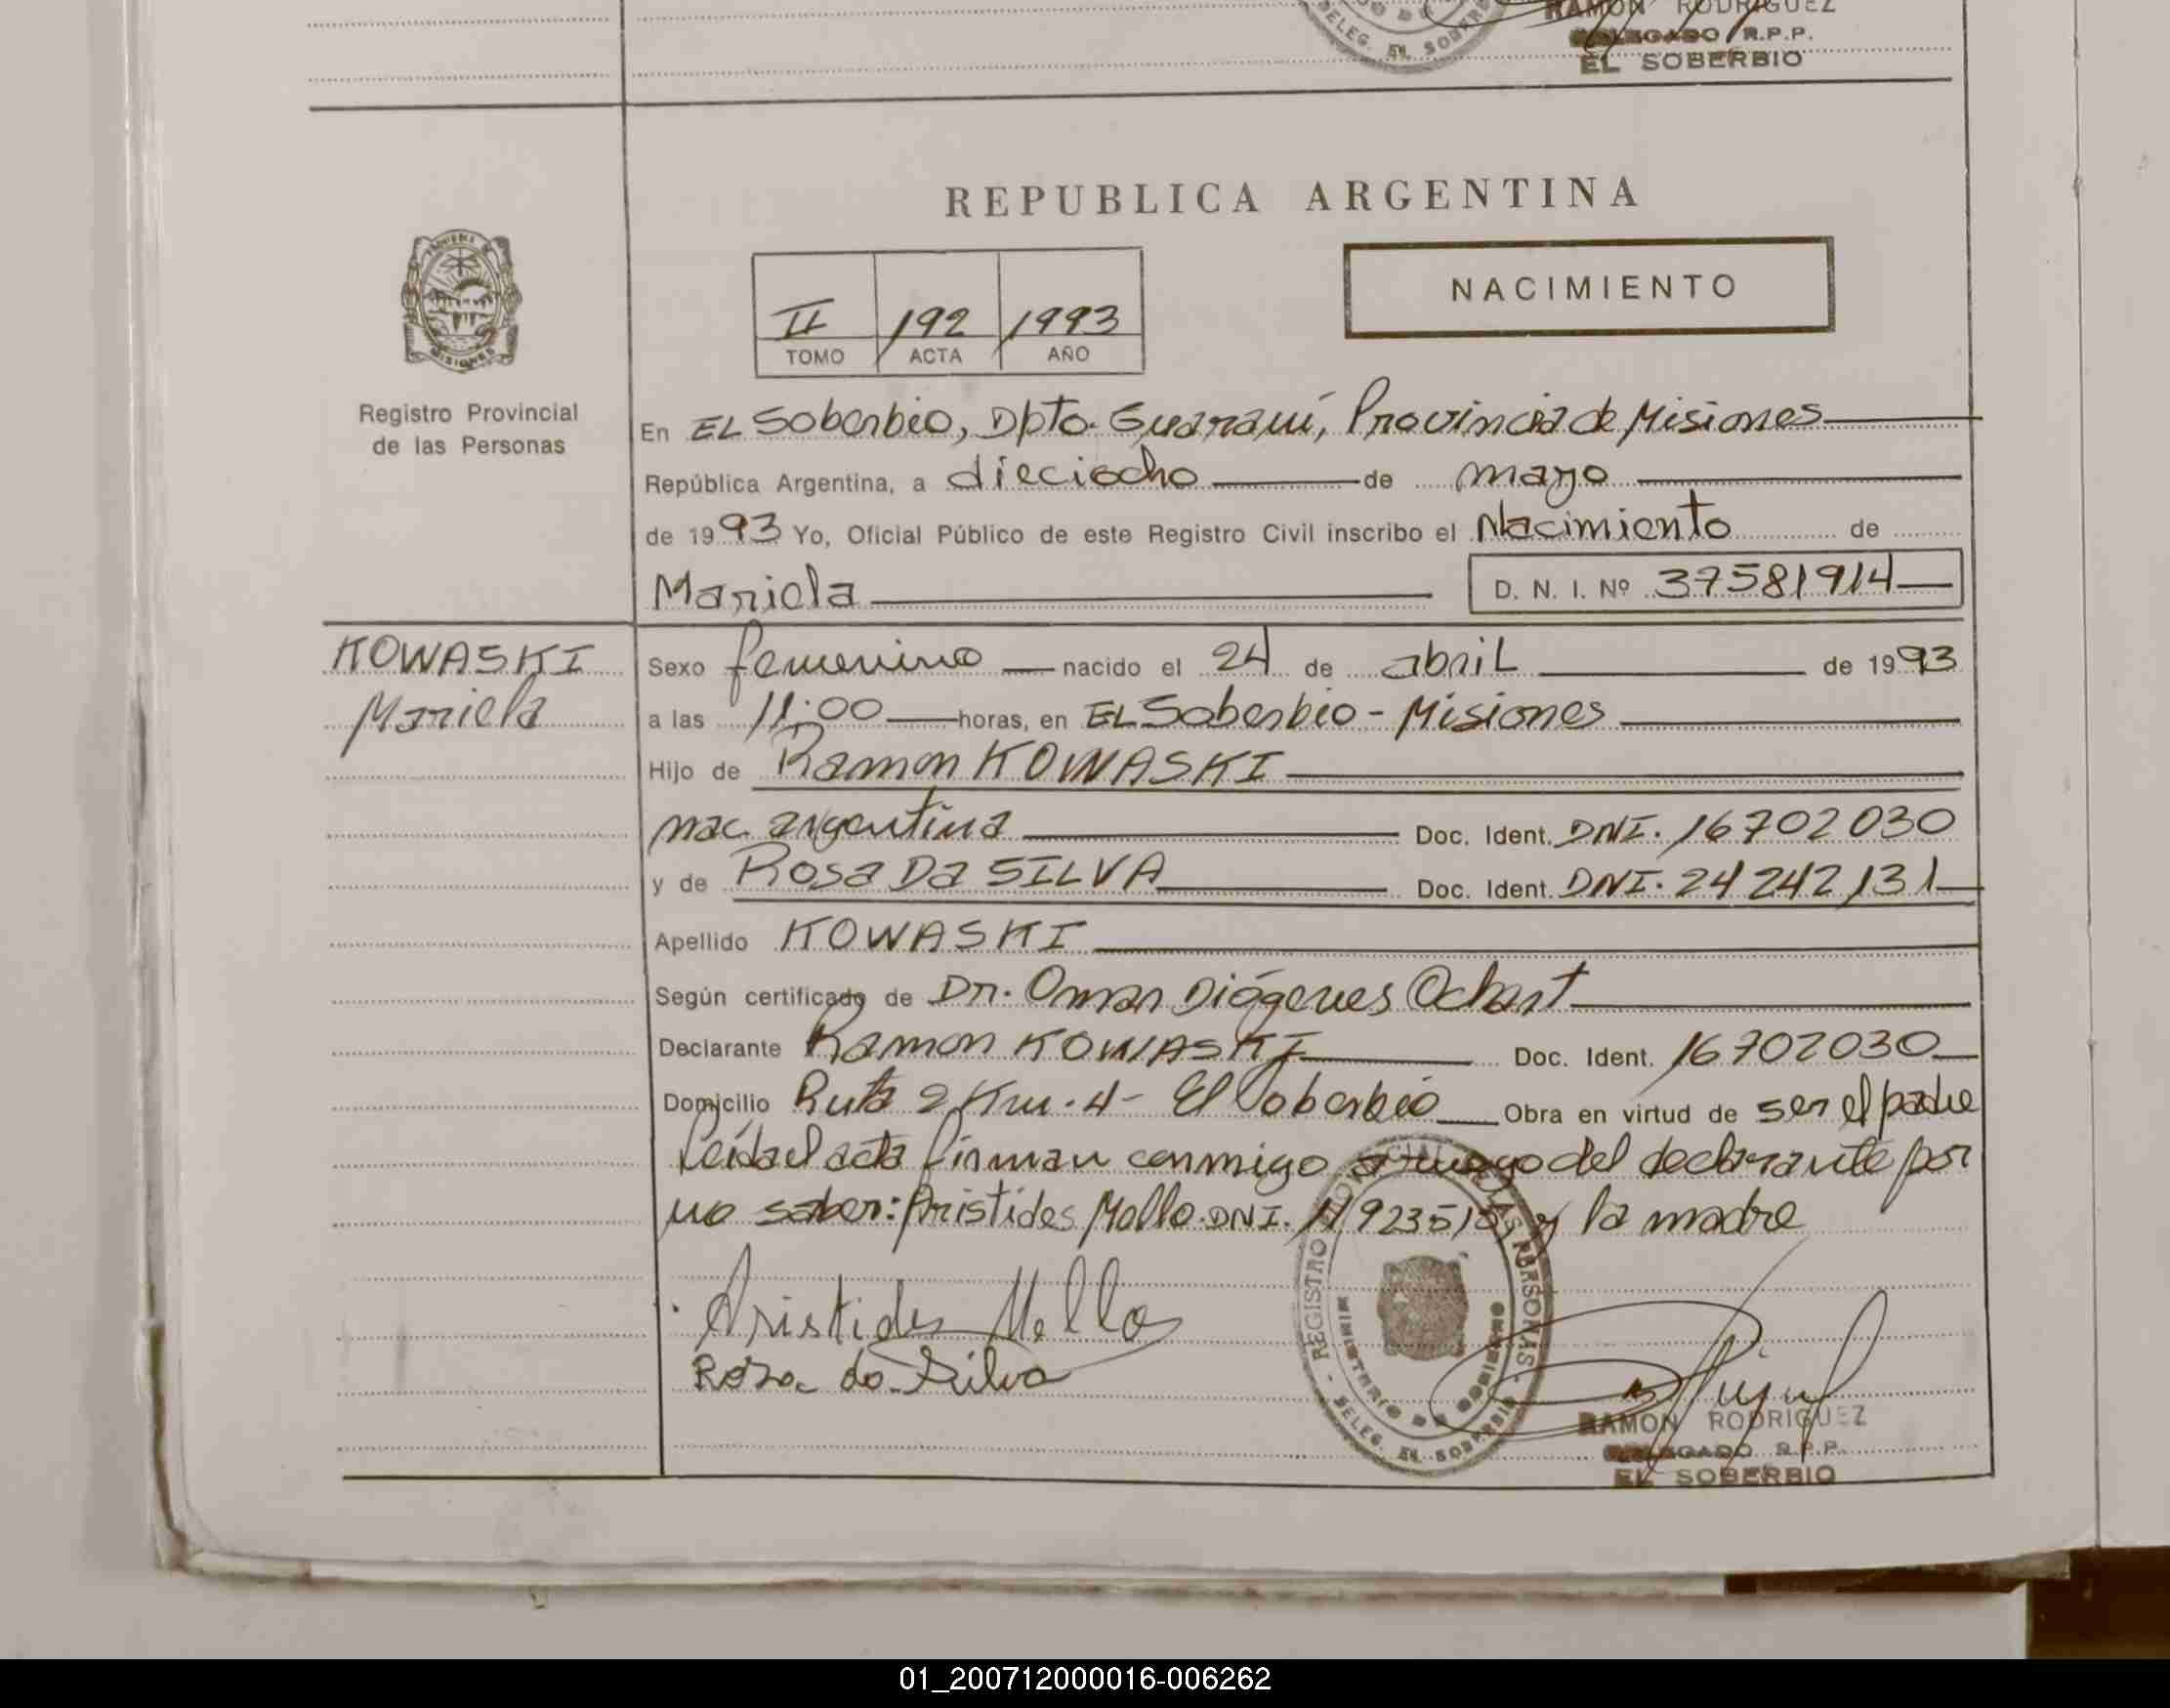 RAMON RODRIGUEZ
DELEGADO R.P.P.
EL SOBERBIO
DELEG. EL SOBERBIO
REPUBLICA ARGENTINA
NACIMIENTO
II 192 1993
TOMO ACTA AÑO
PROVINCIA DE MISIONES
Registro Provincial
de las Personas
En EL Soberbio, Dpto. Guaraní, Provincia de Misiones
República Argentina, a dieciocho de mayo
de 1993 Yo, Oficial Público de este Registro Civil inscribo el Nacimiento de
Mariela D. N. I. Nº 37581914
KOWASKI
Mariela
Sexo femenino nacido el 24 de abril de 1993
a las 11:00 horas, en EL Soberbio - Misiones
Hijo de Ramon KOWASKI
nac. argentina Doc. Ident. DNI. 16702030
y de Rosa Da SILVA Doc. Ident. DNI. 24242131
Apellido KOWASKI
Según certificado de Dr. Omar Diógenes Ochart
Declarante Ramon KOWASKI Doc. Ident. 16702030
Domicilio Ruta 2 Km. 4 - El Soberbio Obra en virtud de ser el padre
Leída el acta firman conmigo a ruego del declarante por
no saber: Aristides Mello. DNI. y la madre
Aristides Mello
Rosa da Silva
REGISTRO PROVINCIAL DE LAS PERSONAS
MINISTERIO DE GOBIERNO
DELEG. EL SOBERBIO
RAMON RODRIGUEZ
DELEGADO R.P.P.
EL SOBERBIO
01_200712000016-006262